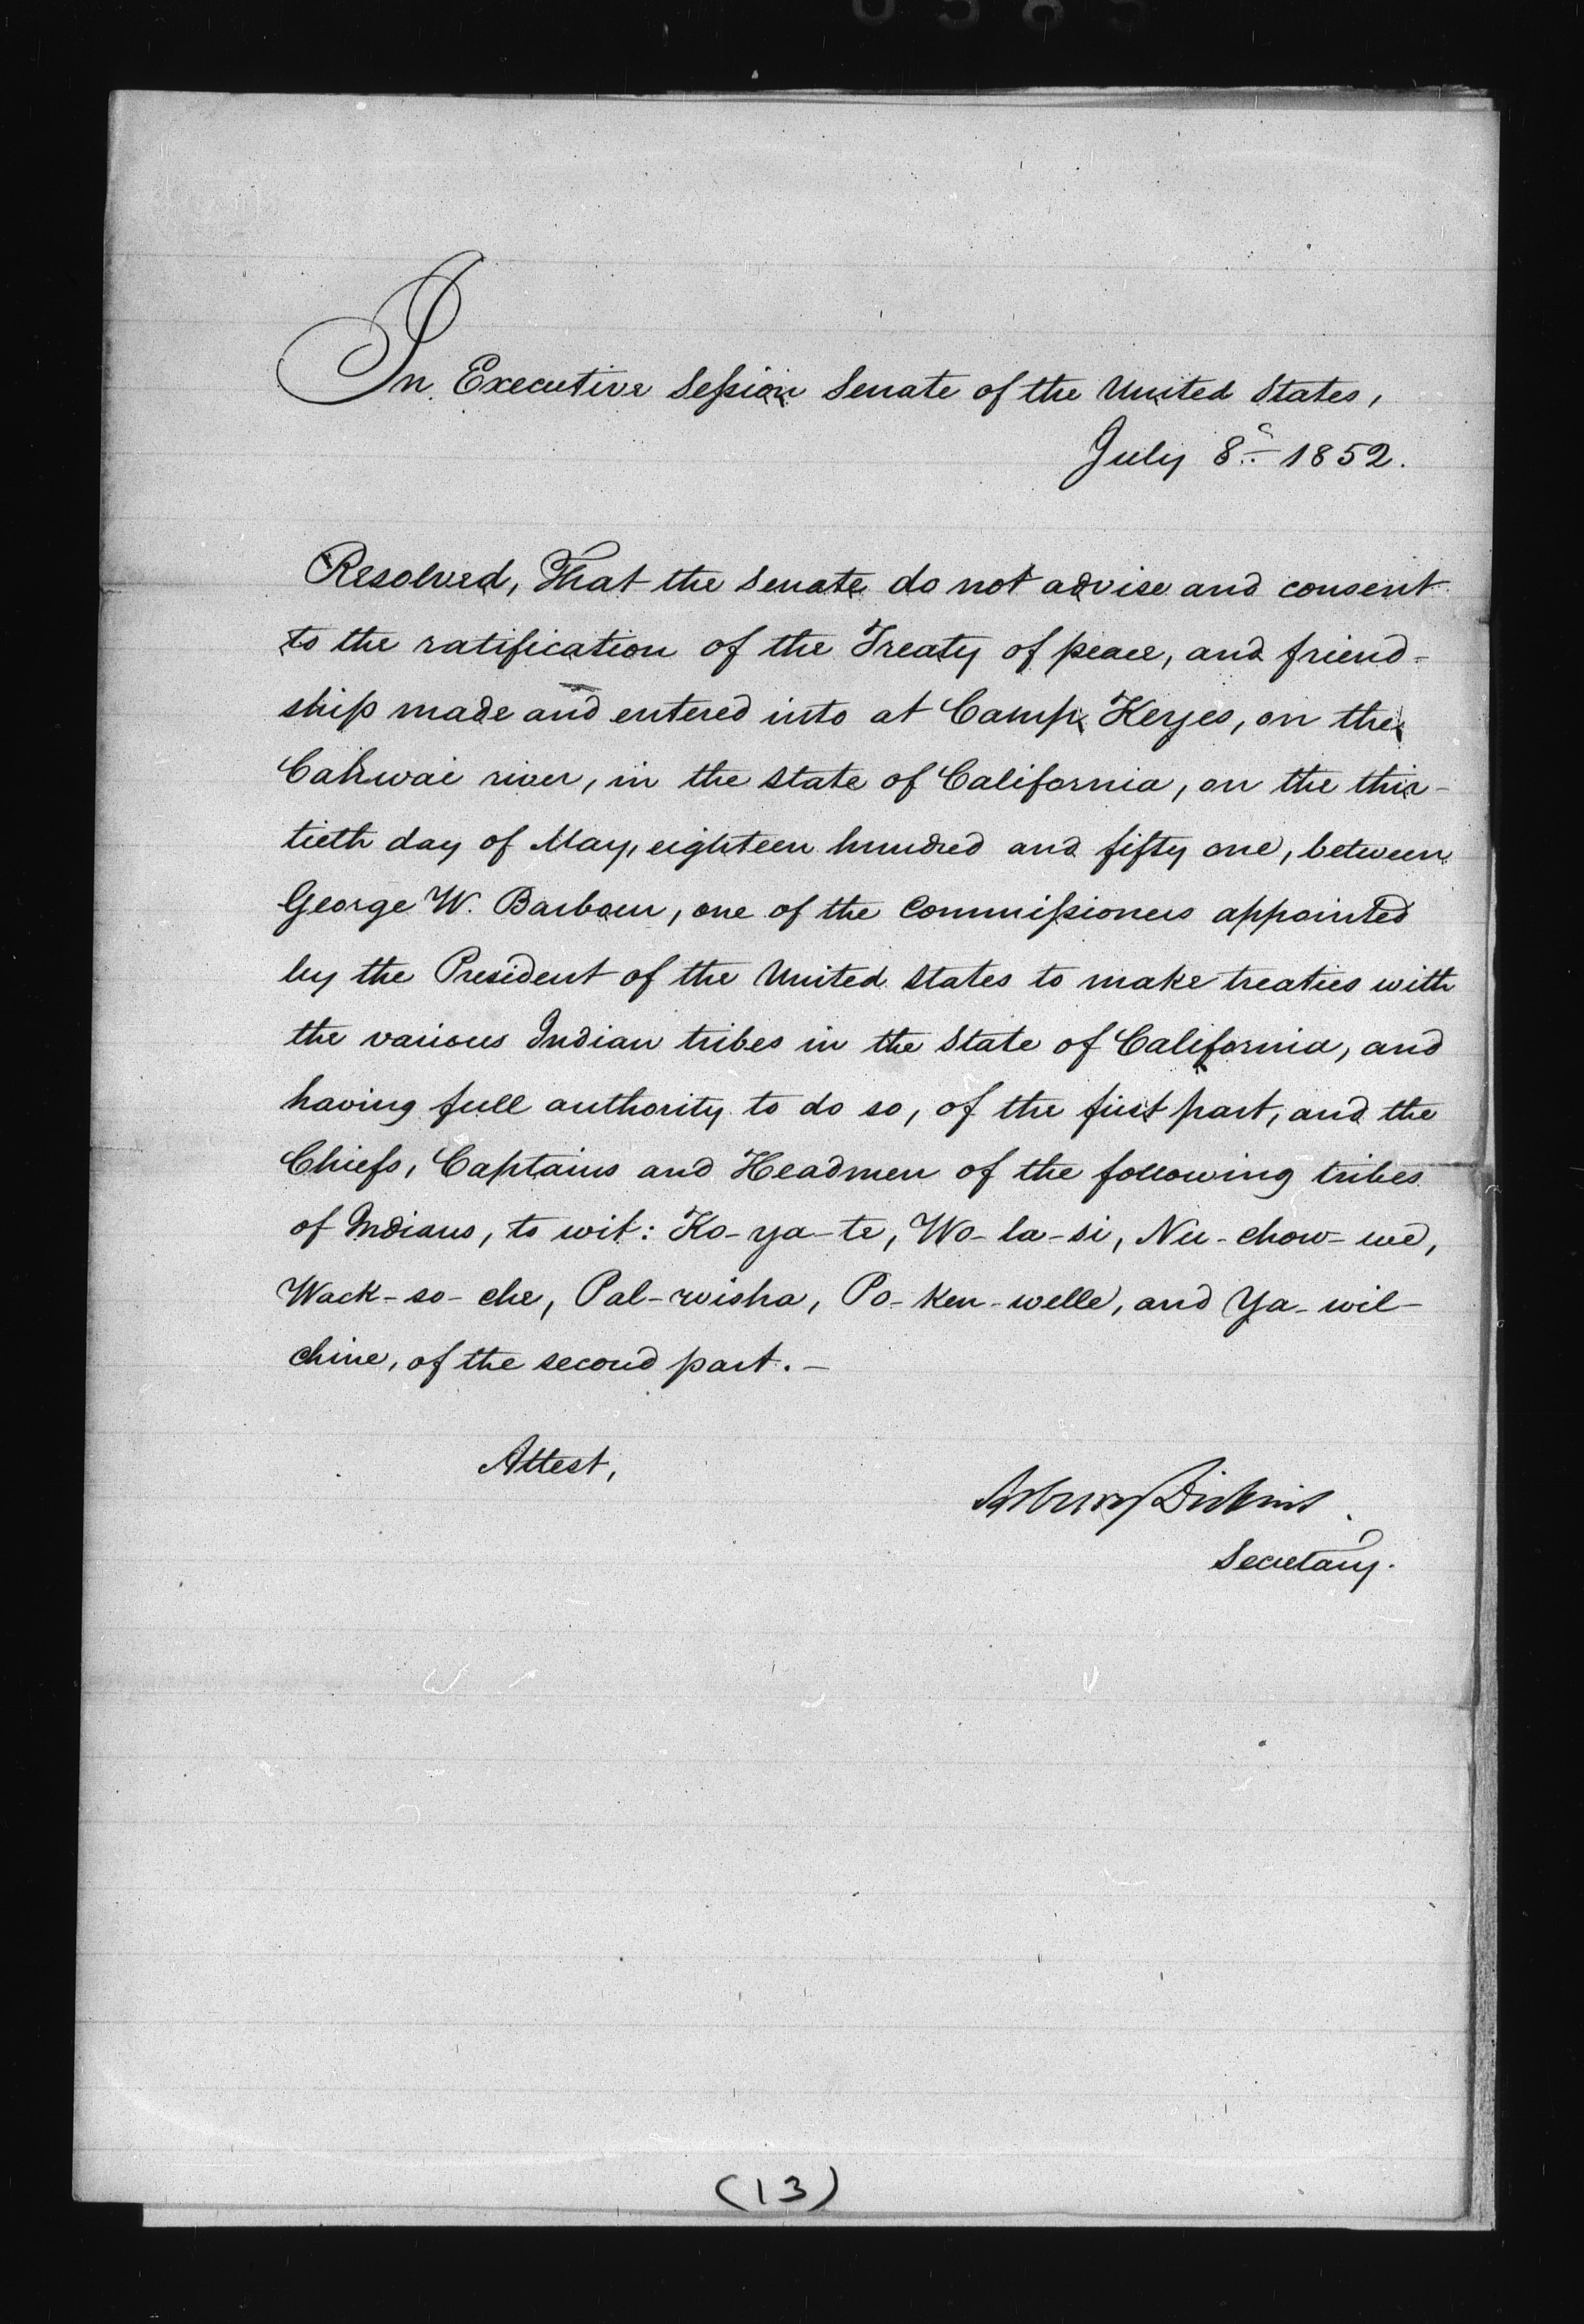 In Executive Session Senate of the United States,
July 8th 1852.
Resolved, That the Senate do not advise and consent
to the ratification of the Treaty of peace, and friend-
ship made and entered into at Camp Keyes, on the
Cahwai river, in the State of California, on the thir-
tieth day of May, eighteen hundred and fifty one, between
George W. Barbour, one of the Commissioners appointed
by the President of the United States to make treaties with
the various Indian tribes in the State of California, and
having full authority to do so, of the first part, and the
Chiefs, Captains and Headmen of the following tribes
of Indians, to wit: Ko-ya-te, Wo-la-si, Nu-chow-we,
Wack-so-che, Pal-wisha, Po-ken-welle, and Ya-wil-
chine, of the second part. –
Attest,
Asbury Dickins
Secretary.
(13)